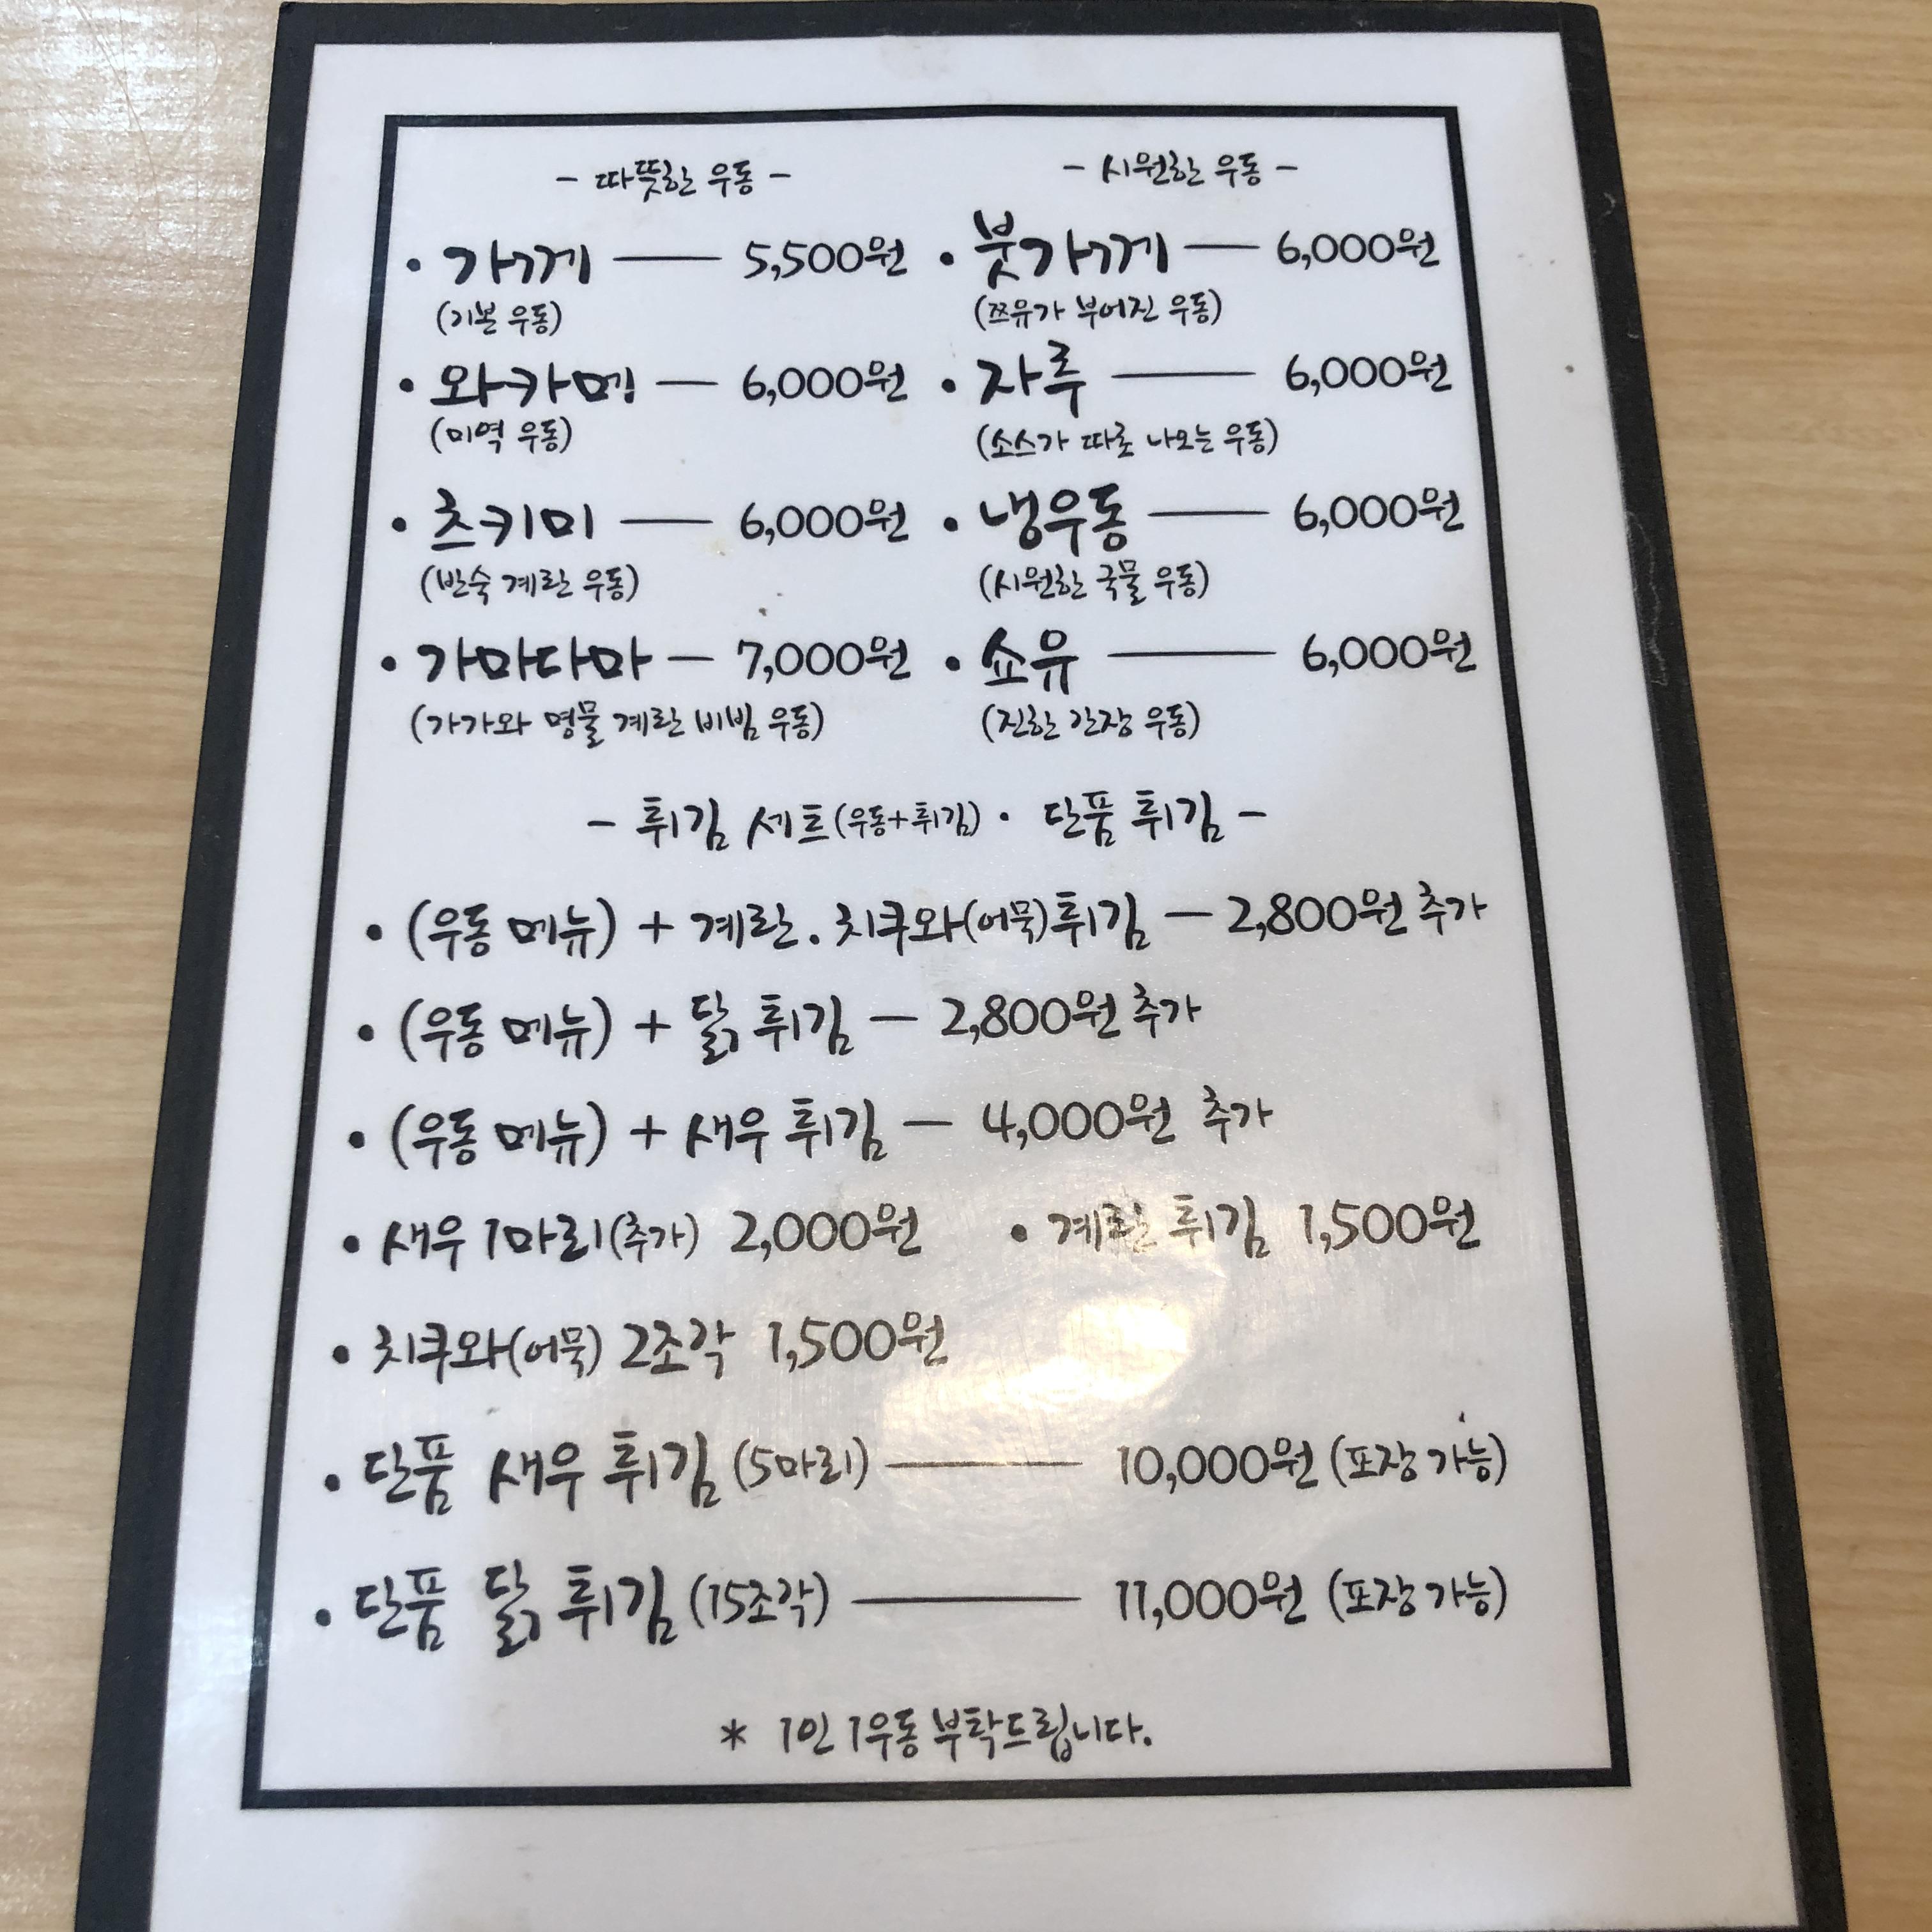 - 따뜻한 우동 -
• 가께 — 5,500원
(기본 우동)
• 와카메 — 6,000원
(미역 우동)
• 츠키미 — 6,000원
(반숙 계란 우동)
• 가마다마 — 7,000원
(가가와 명물 계란 비빔 우동)
- 시원한 우동 -
• 붓가께 — 6,000원
(쯔유가 부어진 우동)
• 자루 — 6,000원
(소스가 따로 나오는 우동)
• 냉우동 — 6,000원
(시원한 국물 우동)
• 쇼유 — 6,000원
(진한 간장 우동)
- 튀김 세트(우동+튀김) · 단품 튀김 -
• (우동 메뉴) + 계란. 치쿠와(어묵)튀김 — 2,800원 추가
• (우동 메뉴) + 닭 튀김 — 2,800원 추가
• (우동 메뉴) + 새우 튀김 — 4,000원 추가
• 새우 1마리(추가) 2,000원 • 계란 튀김 1,500원
• 치쿠와(어묵) 2조각 1,500원
• 단품 새우 튀김 (5마리) — 10,000원 (포장 가능)
• 단품 닭 튀김 (15조각) — 11,000원 (포장 가능)
* 1인 1우동 부탁드립니다.